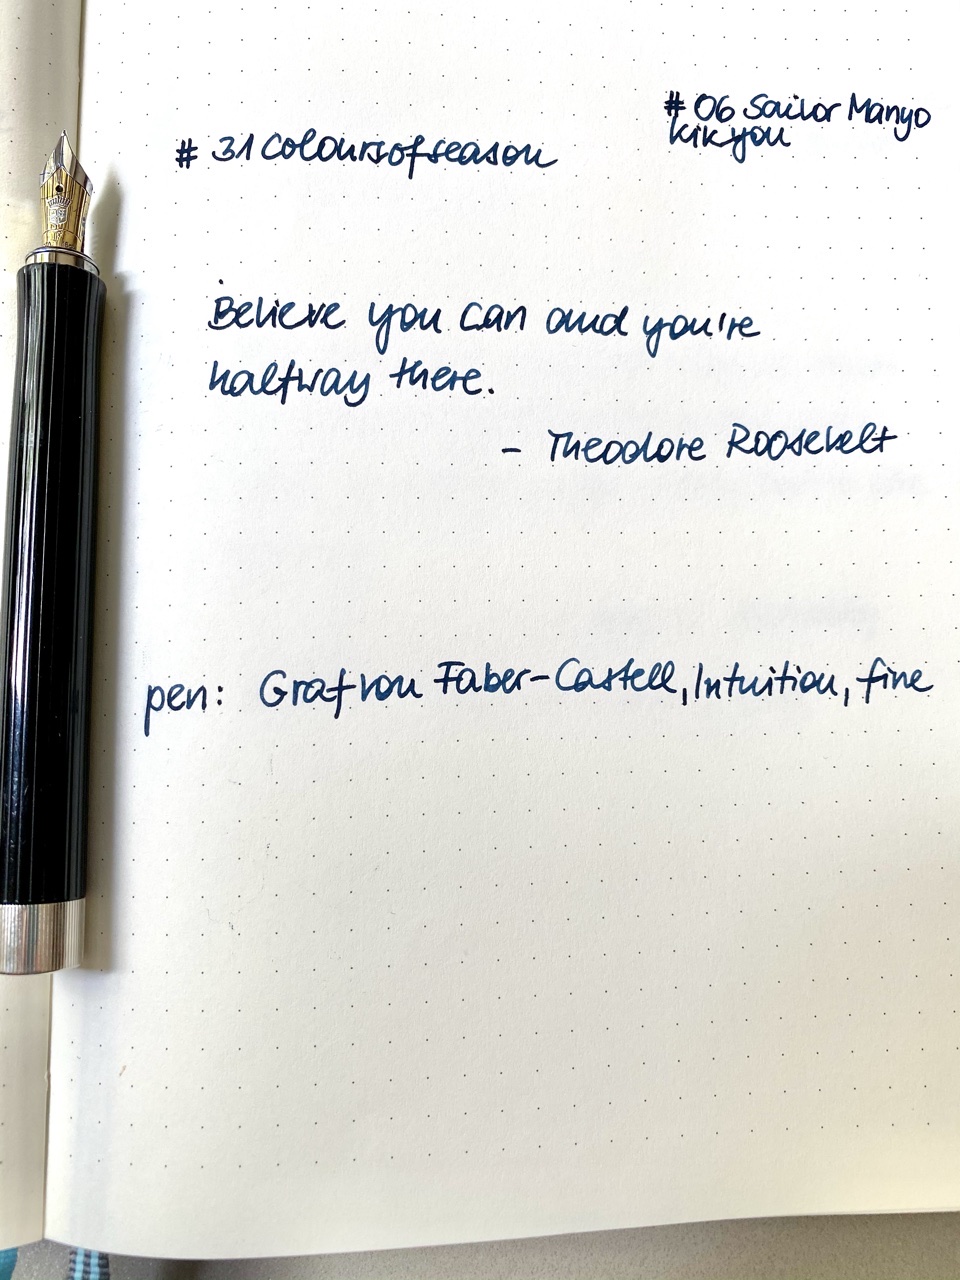 # 06 Sailor Manyo
kikyou
# 31 coloursofseason
Believe you can and you're
halfway there.
- Theodore Roosevelt
pen: Graf von Faber-Castell, Intuition, fine